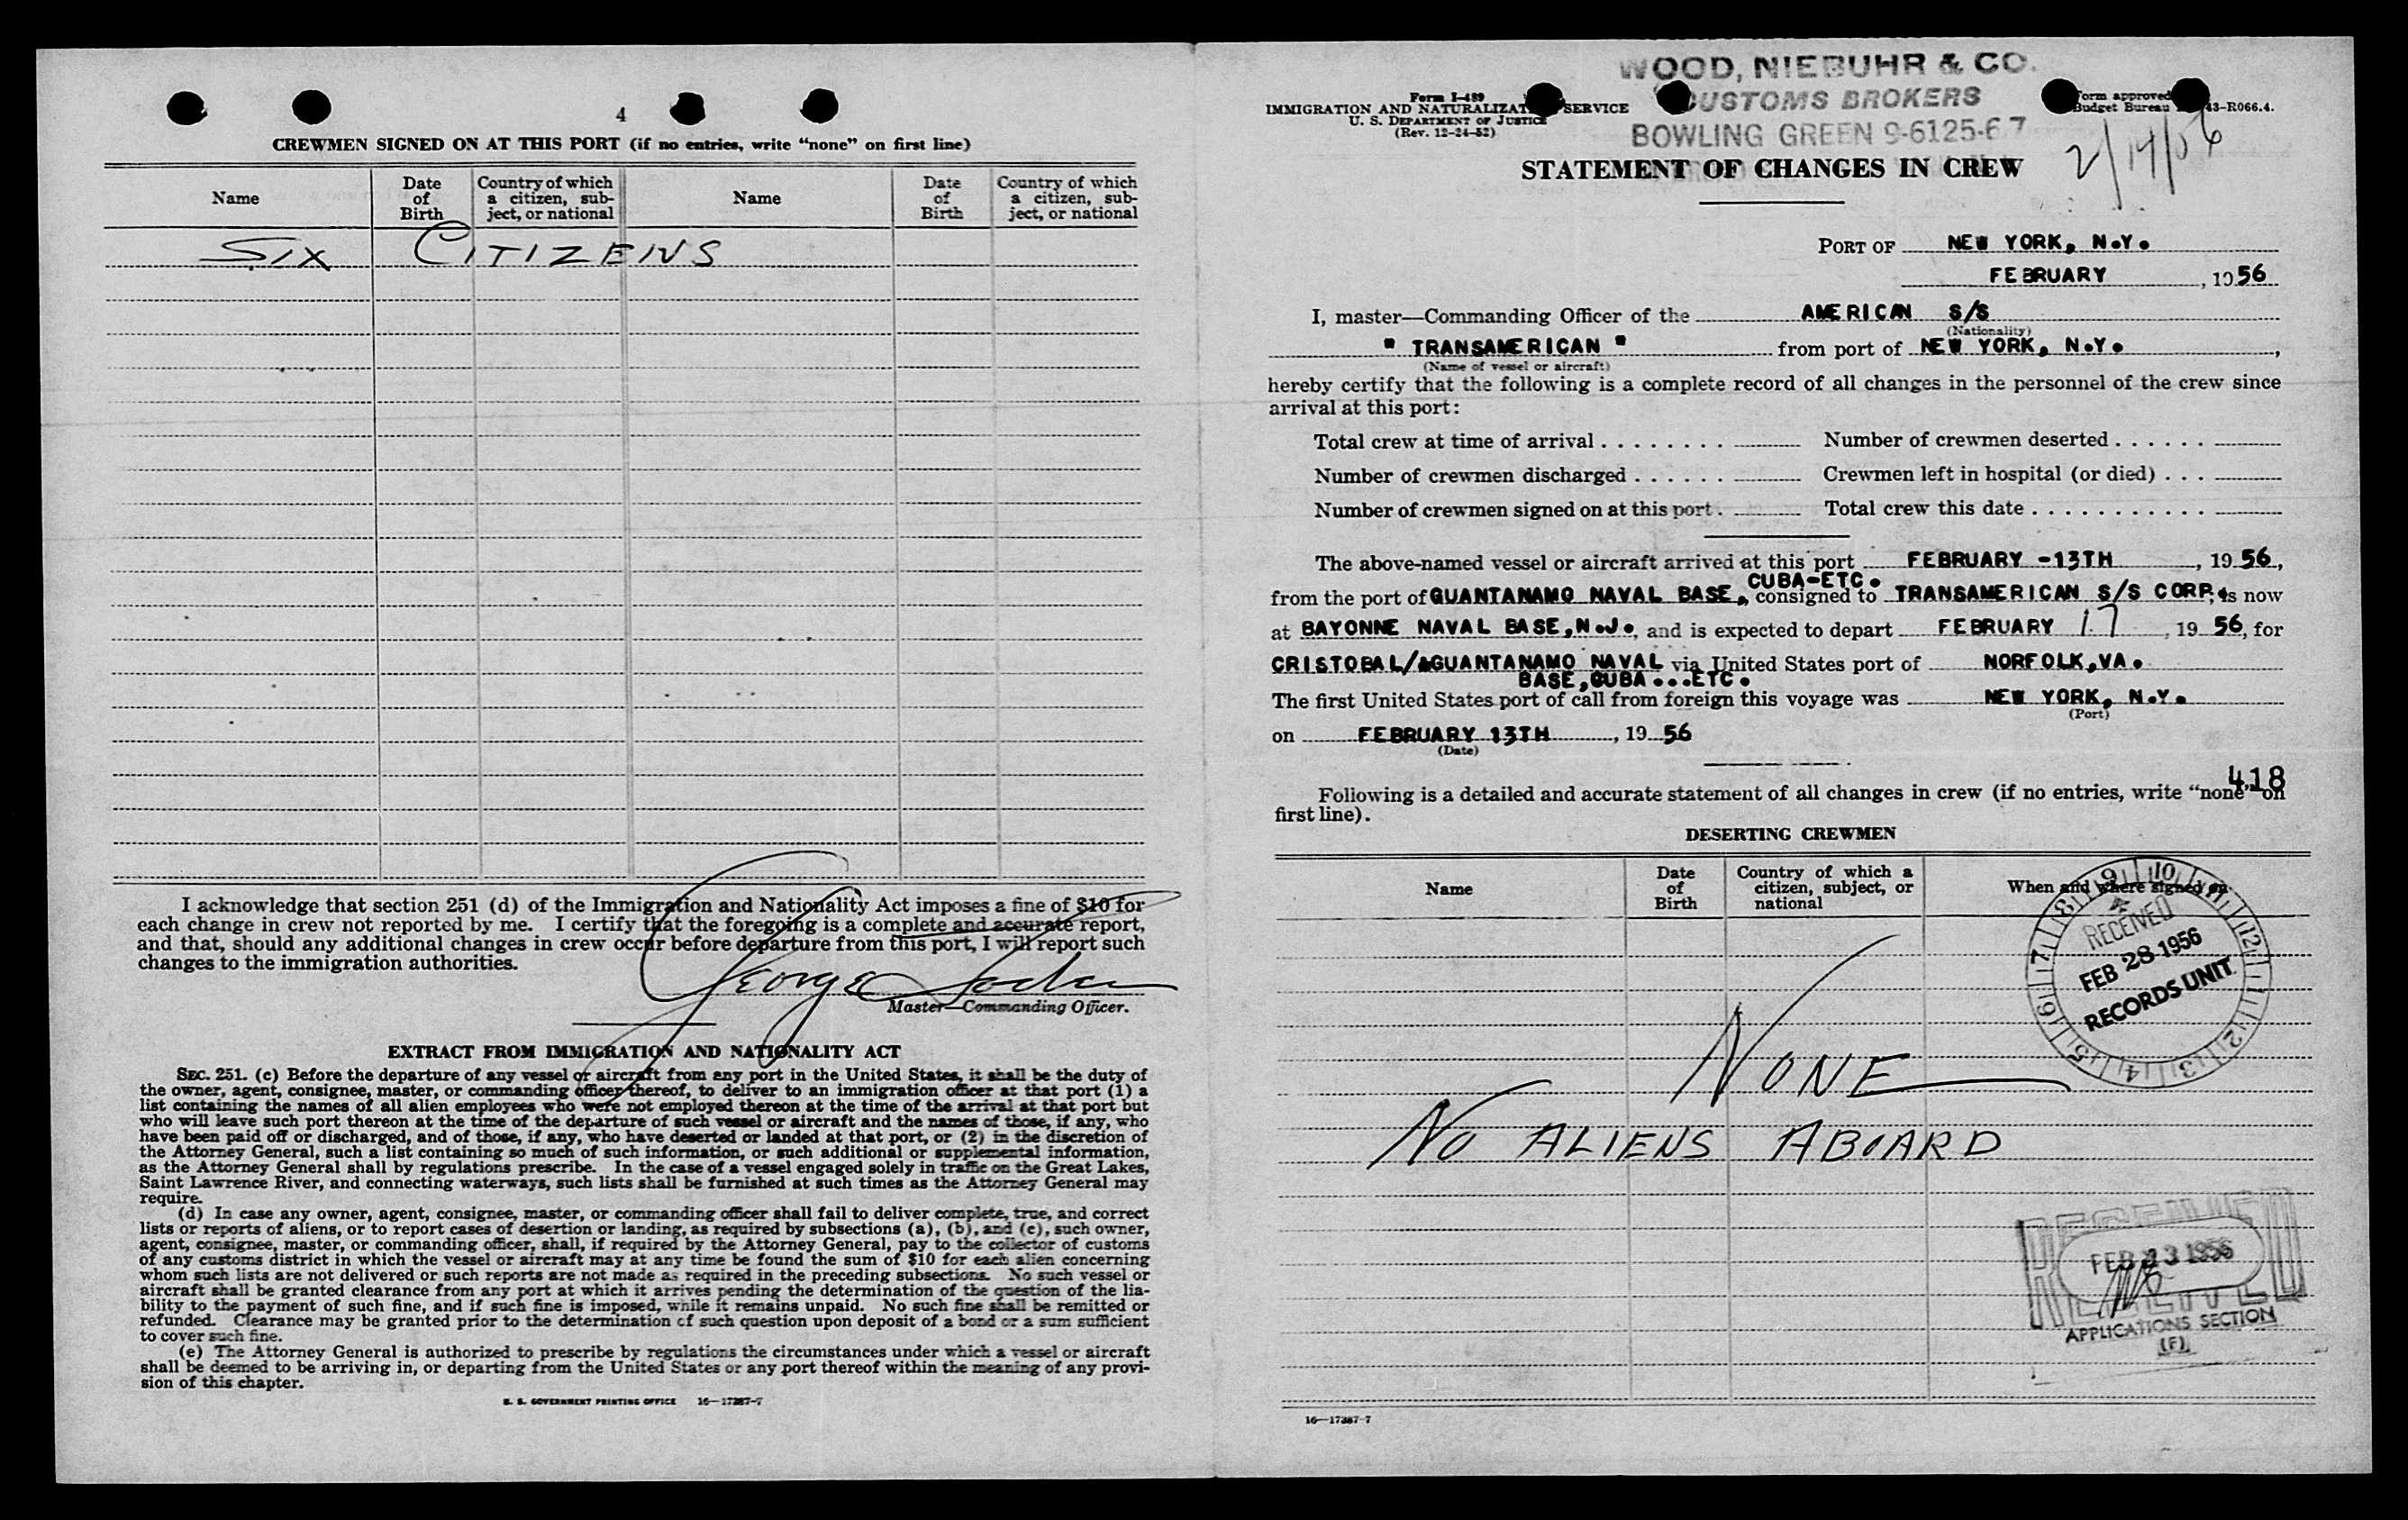 4
CREWMEN SIGNED ON AT THIS PORT (if no entries, write “none” on first line)
Name
Date of Birth
Country of which a citizen, subject, or national
Name
Date of Birth
Country of which a citizen, subject, or national
SIX CITIZENS
I acknowledge that section 251 (d) of the Immigration and Nationality Act imposes a fine of $10 for
each change in crew not reported by me. I certify that the foregoing is a complete and accurate report,
and that, should any additional changes in crew occur before departure from this port, I will report such
changes to the immigration authorities.
George
Master—Commanding Officer.
EXTRACT FROM IMMIGRATION AND NATIONALITY ACT
SEC. 251. (c) Before the departure of any vessel or aircraft from any port in the United States, it shall be the duty of
the owner, agent, consignee, master, or commanding officer thereof, to deliver to an immigration officer at that port (1) a
list containing the names of all alien employees who were not employed thereon at the time of the arrival at that port but
who will leave such port thereon at the time of the departure of such vessel or aircraft and the names of those, if any, who
have been paid off or discharged, and of those, if any, who have deserted or landed at that port, or (2) in the discretion of
the Attorney General, such a list containing so much of such information, or such additional or supplemental information,
as the Attorney General shall by regulations prescribe. In the case of a vessel engaged solely in traffic on the Great Lakes,
Saint Lawrence River, and connecting waterways, such lists shall be furnished at such times as the Attorney General may
require.
(d) In case any owner, agent, consignee, master, or commanding officer shall fail to deliver complete, true, and correct
lists or reports of aliens, or to report cases of desertion or landing, as required by subsections (a), (b), and (c), such owner,
agent, consignee, master, or commanding officer, shall, if required by the Attorney General, pay to the collector of customs
of any customs district in which the vessel or aircraft may at any time be found the sum of $10 for each alien concerning
whom such lists are not delivered or such reports are not made as required in the preceding subsections. No such vessel or
aircraft shall be granted clearance from any port at which it arrives pending the determination of the question of the lia-
bility to the payment of such fine, and if such fine is imposed, while it remains unpaid. No such fine shall be remitted or
refunded. Clearance may be granted prior to the determination of such question upon deposit of a bond or a sum sufficient
to cover such fine.
(e) The Attorney General is authorized to prescribe by regulations the circumstances under which a vessel or aircraft
shall be deemed to be arriving in, or departing from the United States or any port thereof within the meaning of any provi-
sion of this chapter.
U. S. GOVERNMENT PRINTING OFFICE 16—17387-7
WOOD, NIEBUHR & CO.
CUSTOMS BROKERS
BOWLING GREEN 9-6125-6 7
Form I-489
IMMIGRATION AND NATURALIZATION SERVICE
U. S. DEPARTMENT OF JUSTICE
(Rev. 12-24-52)
Form approved
Budget Bureau 43-R066.4.
2/14/56
STATEMENT OF CHANGES IN CREW
PORT OF NEW YORK, N.Y.
FEBRUARY, 1956
I, master—Commanding Officer of the AMERICAN S/S
(Nationality)
" TRANSAMERICAN " from port of NEW YORK, N.Y.,
(Name of vessel or aircraft)
hereby certify that the following is a complete record of all changes in the personnel of the crew since
arrival at this port:
Total crew at time of arrival Number of crewmen deserted
Number of crewmen discharged Crewmen left in hospital (or died)
Number of crewmen signed on at this port Total crew this date
The above-named vessel or aircraft arrived at this port FEBRUARY -13TH, 1956,
CUBA-ETC.
from the port of GUANTANAMO NAVAL BASE, consigned to TRANSAMERICAN S/S CORP, is now
at BAYONNE NAVAL BASE, N.J., and is expected to depart FEBRUARY 17, 1956, for
CRISTOBAL/&GUANTANAMO NAVAL via United States port of NORFOLK, VA.
BASE, CUBA...ETC.
The first United States port of call from foreign this voyage was NEW YORK, N.Y.
(Port)
on FEBRUARY 13TH, 1956
(Date)
418
Following is a detailed and accurate statement of all changes in crew (if no entries, write “none” on
first line).
DESERTING CREWMEN
Name
Date of Birth
Country of which a citizen, subject, or national
When and where signed on
RECEIVED
FEB 28 1956
RECORDS UNIT
1 2 3 4 5 6 7 8 9 10 11 12
NONE
NO ALIENS ABOARD
RECEIVED
FEB 23 1956
APPLICATIONS SECTION
(F)
16—17387-7